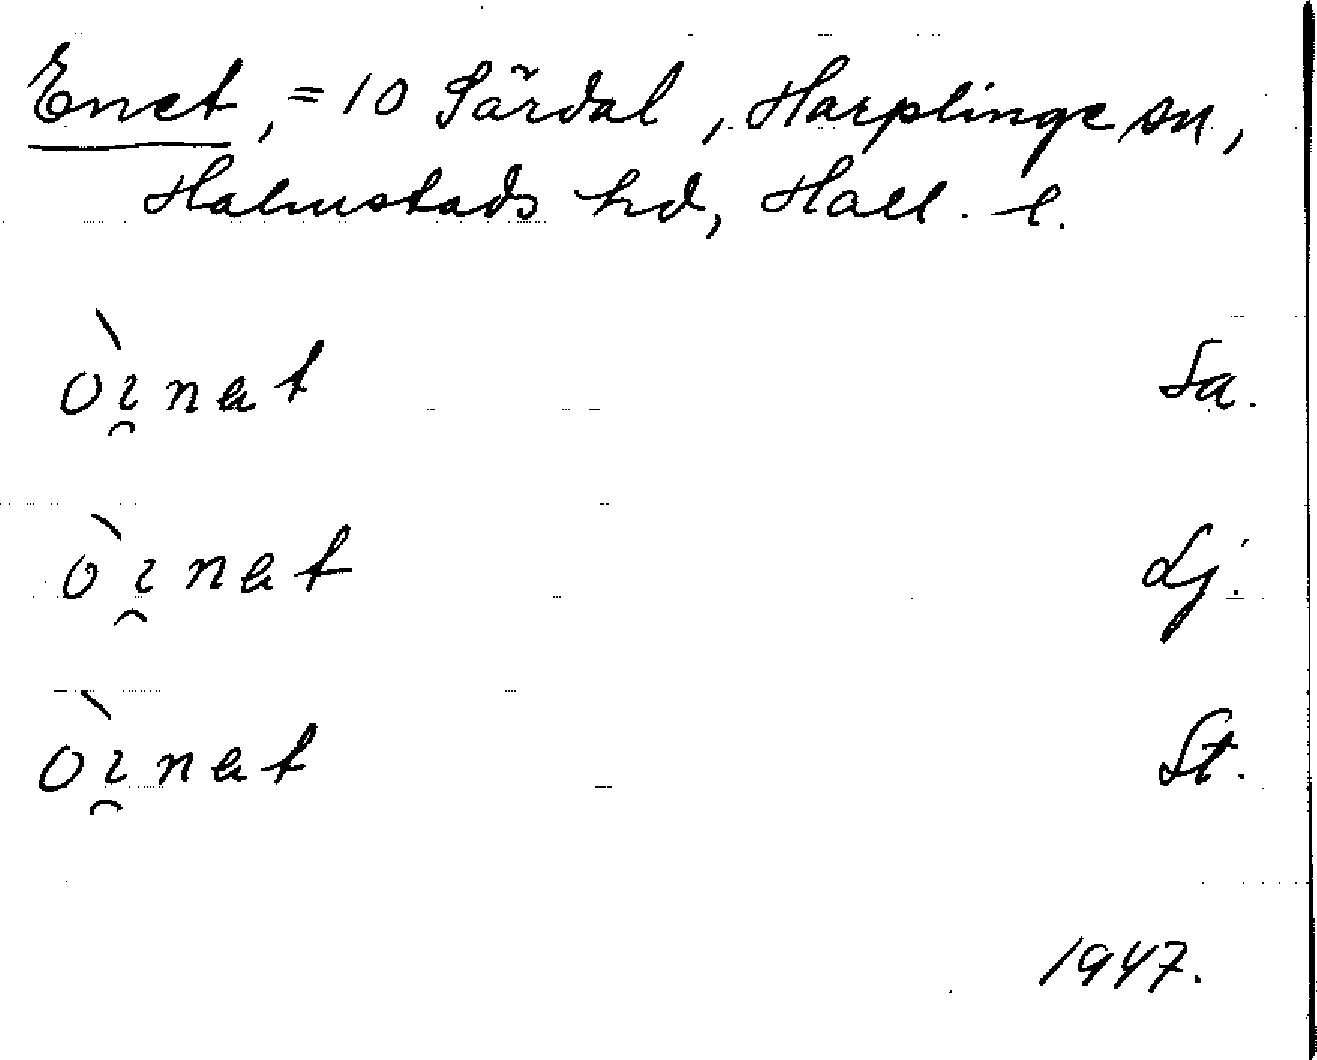 Enet, = 10 Särdal, Harplinge sn,
Halmstads hd, Hall. l.
òı̯nat Sa.
òı̯nat Lj.
òı̯nat St.
1947.